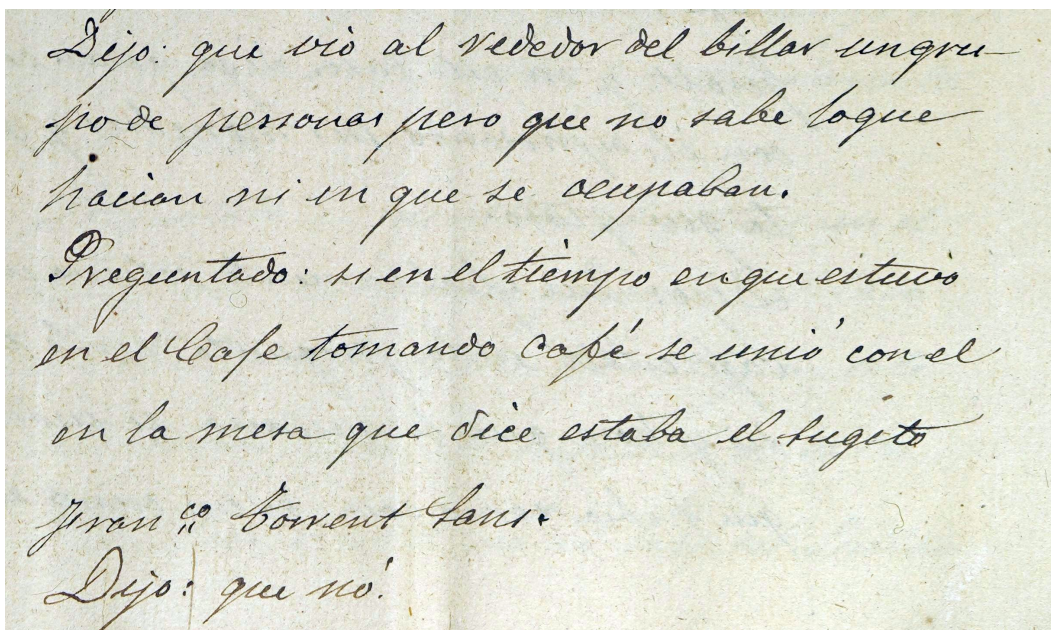 Dijo: que vió al rededor del billar un gru-
po de personas pero que no sabe loque
hacian ni en que se ocupaban.
Preguntado: si en el tiempo en que estuvo
en el Cafe tomando café se unió con el
en la mesa que dice estaba el sugeto
Fran.co Torrent Sans.
Dijo: que nó.